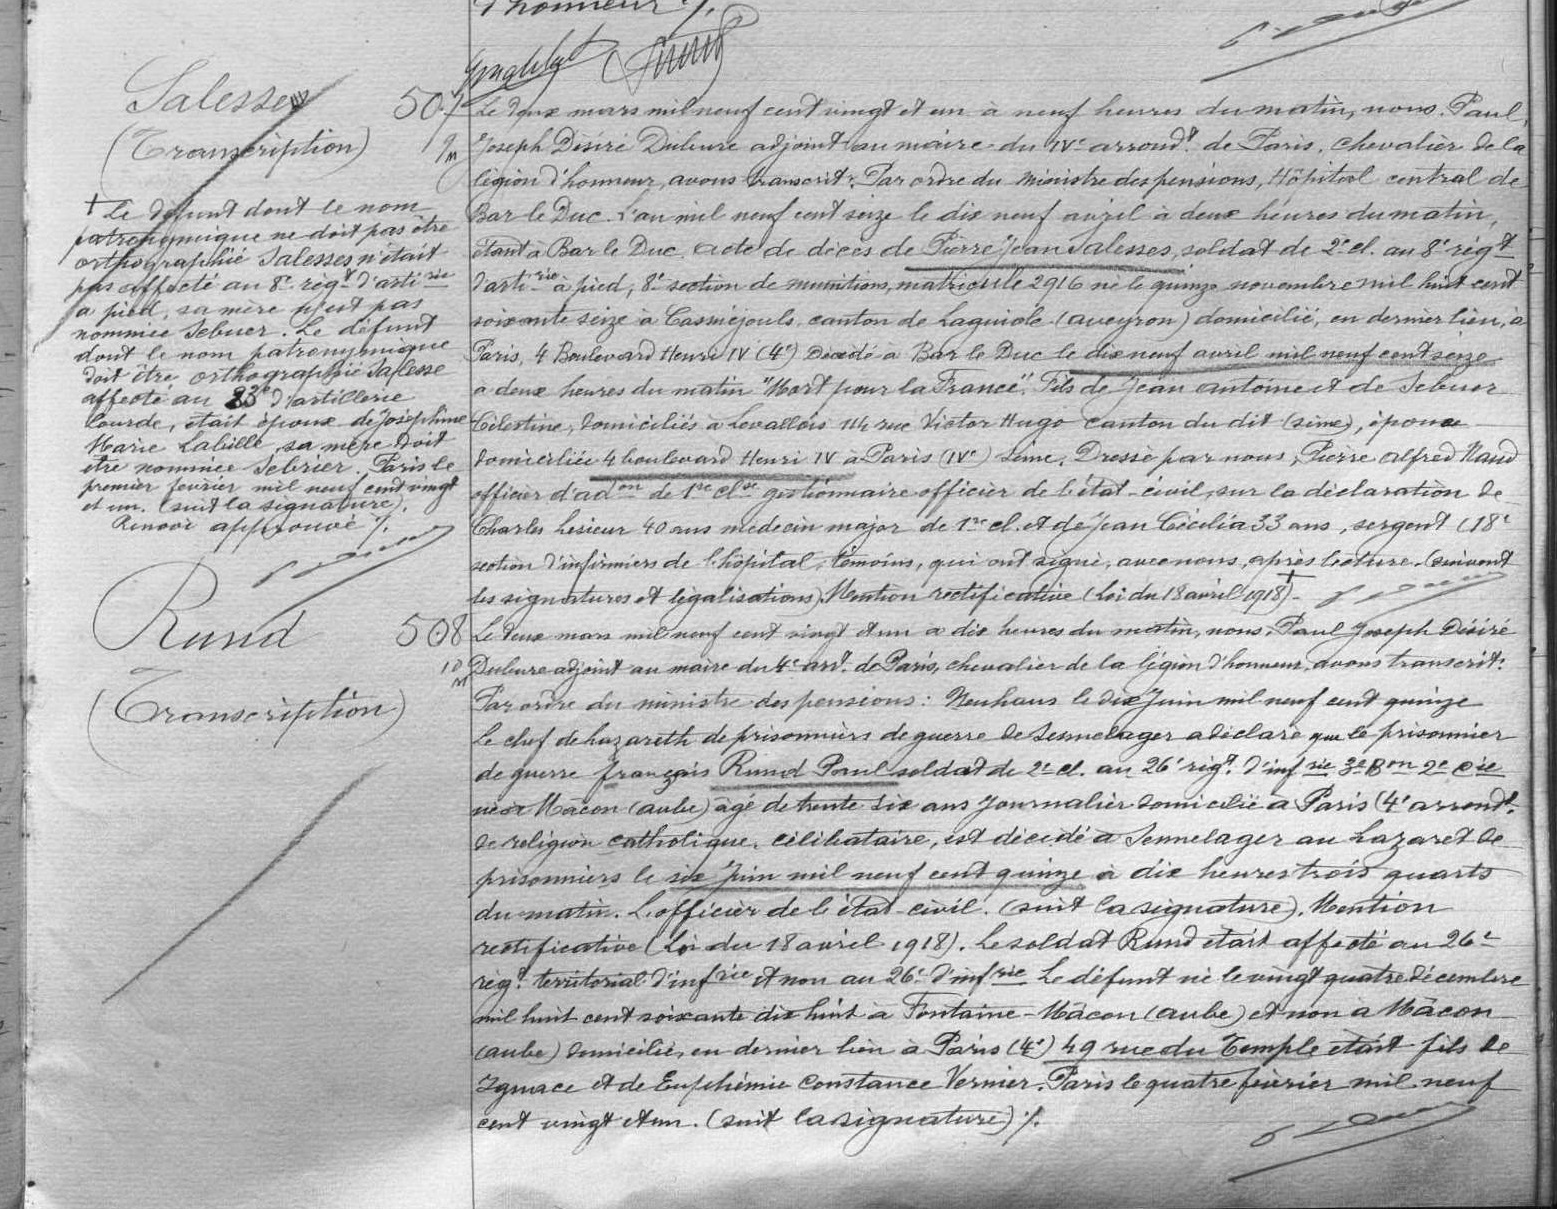 d'honneur ./.
Salesses
(Transcription)
507
Le deux mars mil neuf cent vingt et un à neuf heures du matin, nous, Paul,
Joseph Désiré Dubure adjoint au maire du IVe arrondt. de Paris, chevalier de la
légion d'honneur, avons transcrit: Par ordre du ministre des pensions, Hôpital central de
Bar le Duc. L'an mil neuf cent seize le dix neuf avril à deux heures du matin,
étant à Bar le Duc, acte de décès de Pierre Jean Salesses, soldat de 2e cl. au 8e régt
d'artirie à pied, 8e section de munitions, matricule 2916 né le quinze novembre mil huit cent
soixante seize à Casméjouls, canton de Laguiole (aveyron) domicilié, en dernier lieu, à
Paris, 4 Boulevard Henri IV (4e) Décédé à Bar le Duc le dix neuf avril mil neuf cent seize
à deux heures du matin "Mort pour la France". Fils de Jean Antoine et de Sebuer
Célestine, domiciliés à Levallois 114 rue Victor Hugo canton du dit (seine), époux
domiciliée 4 boulevard Henri IV à Paris (IVe) seine. Dressé par nous, Pierre Alfred Naud
officier d'adon de 1re clse gestionnaire officier de l'état-civil, sur la déclaration de
Charles Lesieur 40 ans médecin major de 1re cl. et de Jean Cécilia 33 ans, sergent (18e
section d'infirmiers de l'hôpital, témoins, qui ont signé, avec nous, après lecture. (suivent
les signatures et légalisations). Mention rectificative (Loi du 18 avril 1918)-†
† Le défunt dont le nom
patronymique ne doit pas être
orthographié Salesses n'était
pas affecté au 8e régt d'artisie
à pied, sa mère n'est pas
nommée Sebuer. Le défunt
dont le nom patronymique
doit être orthographié Salesse
affecté au 83e d'artillerie
lourde, était époux de Joséphine
Marie Labille, sa mère doit
être nommée Sebrier. Paris le
premier février mil neuf cent vingt
et un. (suit la signature).
Renvoi approuvé ./.
Rund
(Transcription)
508
Le deux mars mil neuf cent vingt et un à dix heures du matin, nous, Paul Joseph Désiré
Dubure adjoint au maire du 4e arrt. de Paris, chevalier de la légion d'honneur, avons transcrit:
Par ordre du ministre des pensions: Neuhaus le dix Juin mil neuf cent quinze
Le chef de Lazareth de prisonniers de guerre de Sennelager a déclaré que le prisonnier
de guerre français Rund Paul soldat de 2e cl. au 26e régt. d'infrie 3e Bon 2e Cie
né à Mâcon (aube) âgé de trente six ans Journalier domicilié à Paris (4e arrondt.
de religion catholique, célibataire, est décédé à Sennelager au Lazaret de
prisonniers le six Juin mil neuf cent quinze à dix heures trois quarts
du matin. L'officier de l'état-civil. (suit la signature). Mention
rectificative (Loi du 18 avril 1918). Le soldat Rund était affecté au 26e
régt. territorial d'infrie et non au 26e d'infrie Le défunt né le vingt quatre décembre
mil huit cent soixante dix huit à Fontaine-Mâcon (aube) et non à Mâcon
(aube) domicilié, en dernier lieu à Paris (4e) 49 rue du Temple était fils de
Ignace et de Euphémie Constance Vernier. Paris le quatre février mil neuf
cent vingt et un. (suit la signature) ./.